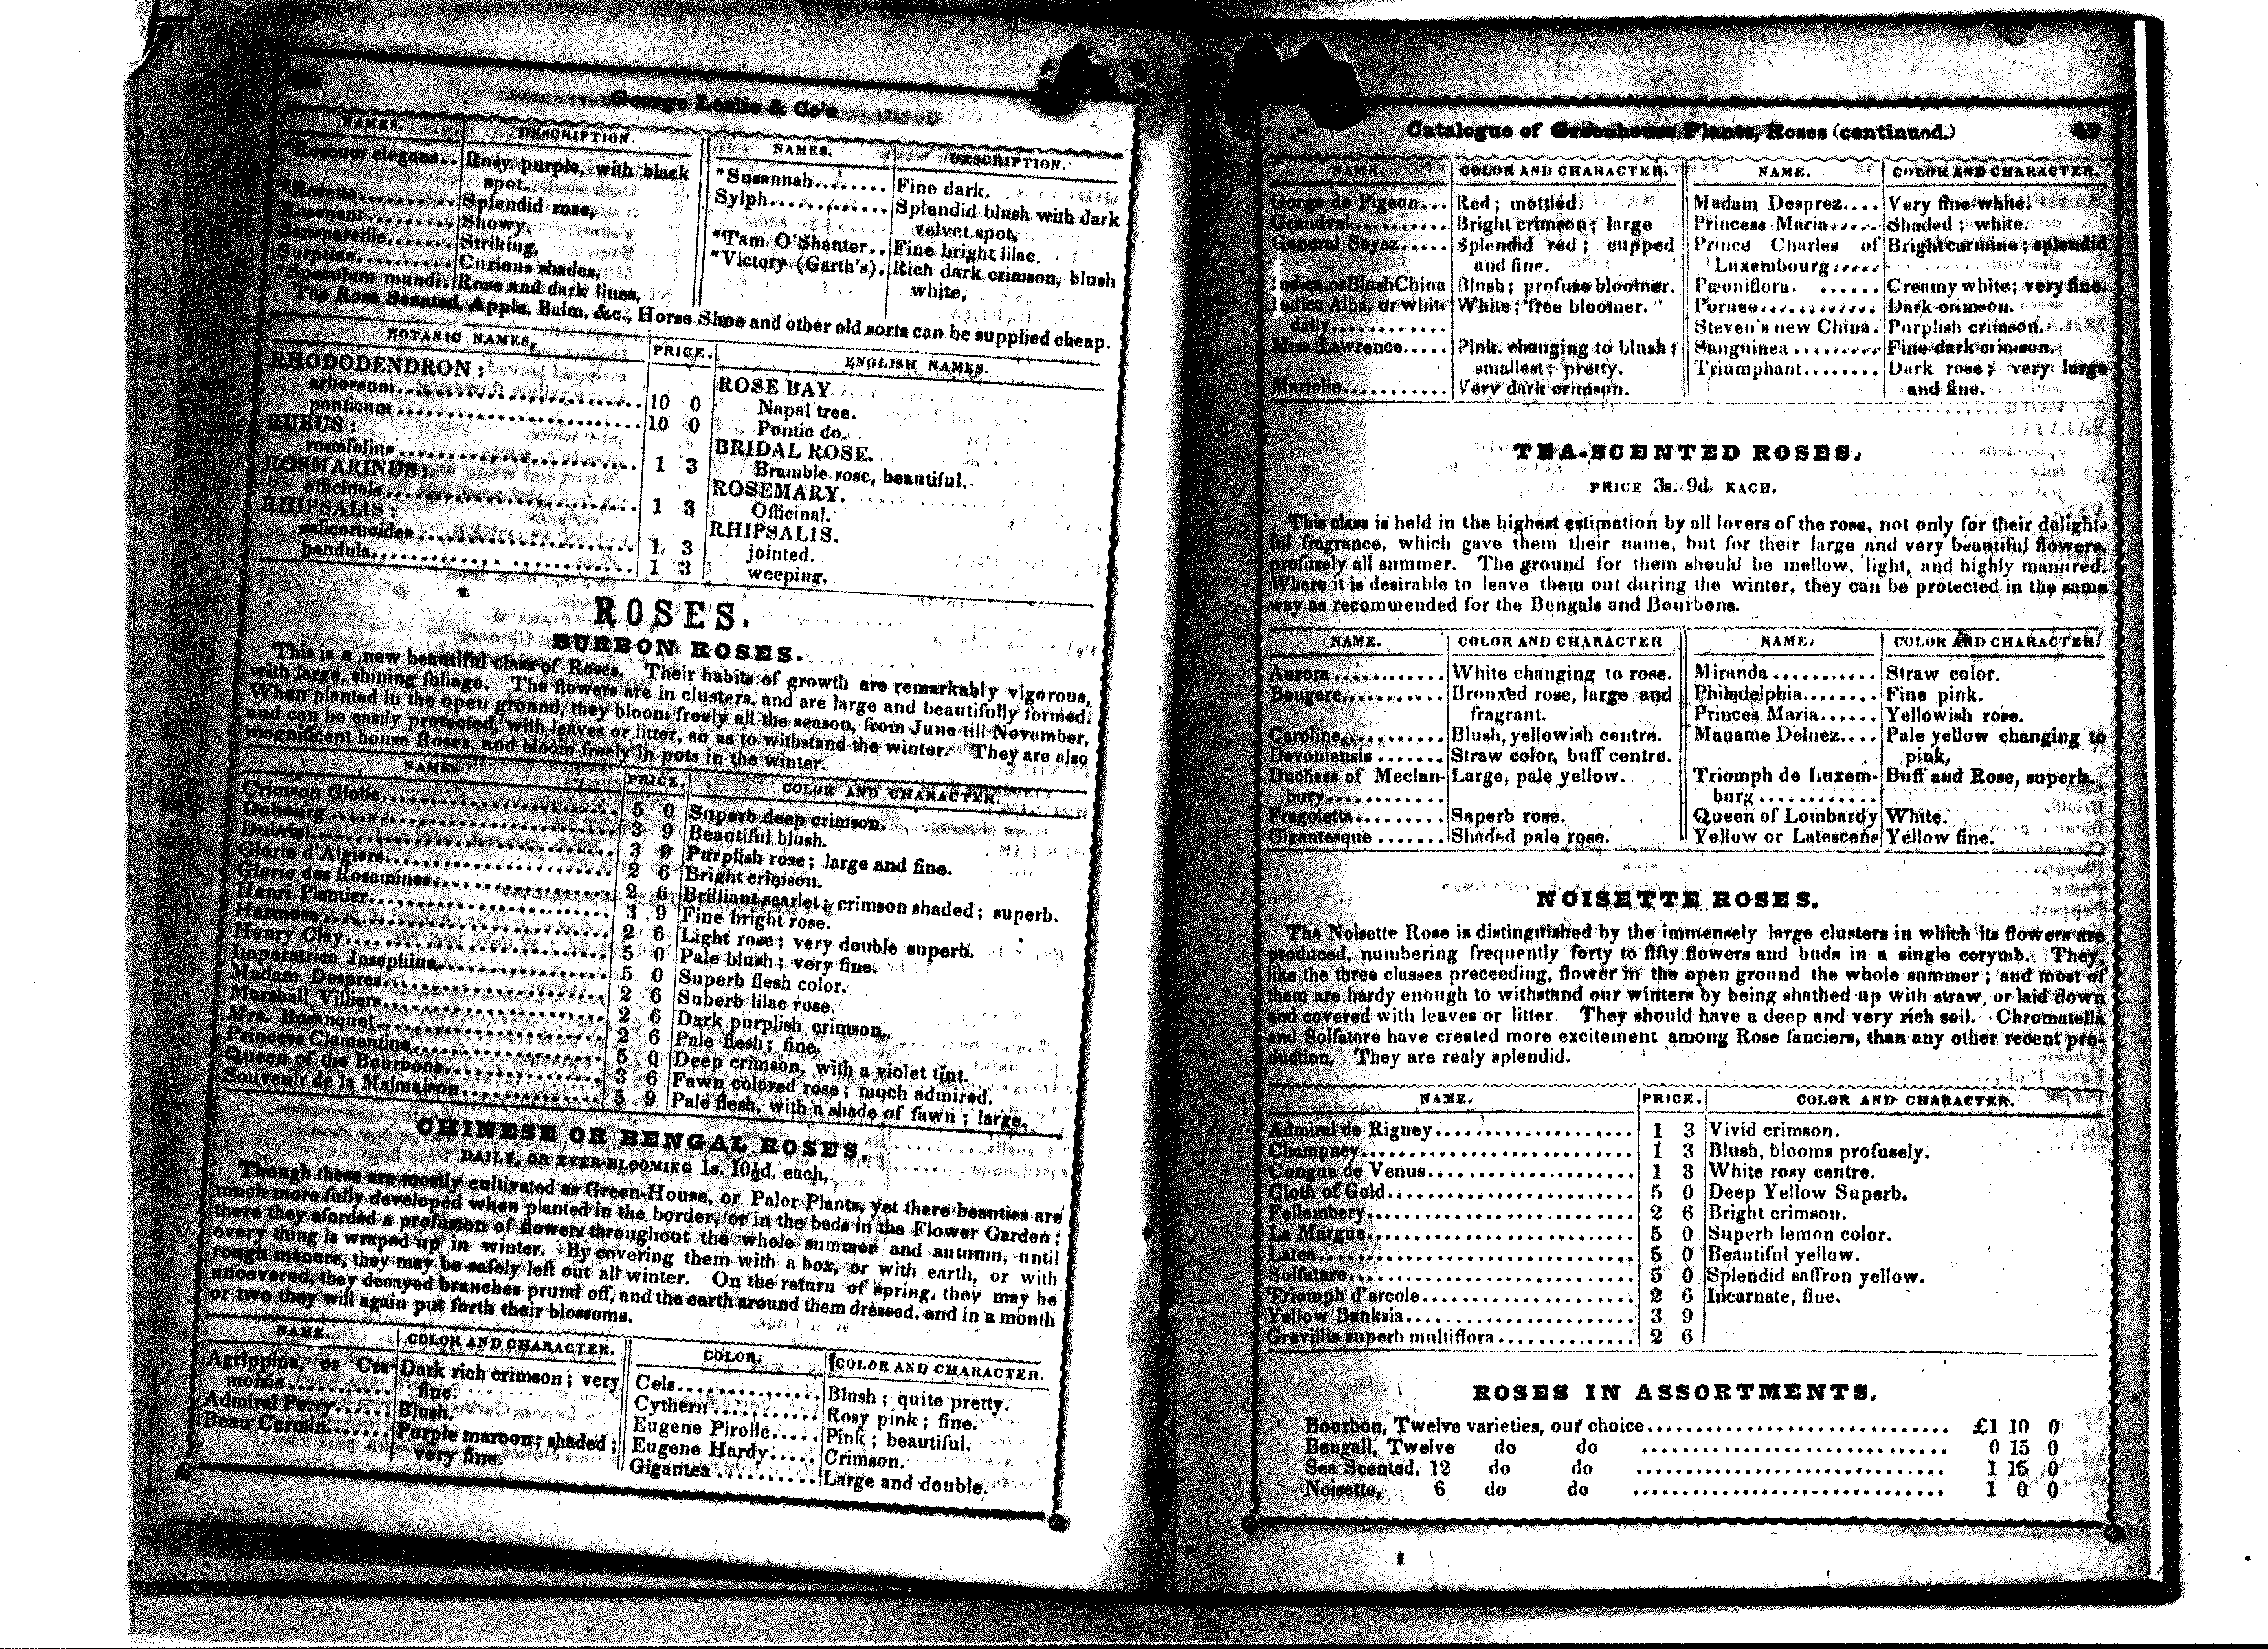 George Leslie & Co's
NAMES. DESCRIPTION.
*Roseum elegans.. Rosy purple, with black
spot.
*Rosetta.......... Splendid rose,
Rosenant......... Showy.
Sanspareille....... Striking,
Surprise.......... Curious shades,
*Speculum mundi. Rose and dark lines,
NAMES. DESCRIPTION.
*Susannah........ Fine dark.
Sylph............. Splendid blush with dark
velvet spot,
*Tam O'Shanter.. Fine bright lilac.
*Victory (Garth's). Rich dark crimson, blush
white,
The Rose Scented, Apple, Balm, &c., Horse Shoe and other old sorts can be supplied cheap.
BOTANIC NAMES, PRICE. ENGLISH NAMES.
RHODODENDRON; ROSE BAY
arboreum.............................. 10 0 Napal tree.
ponticum.............................. 10 0 Pontic do.
RUBUS: BRIDAL ROSE.
rosæfolins.............................. 1 3 Bramble rose, beautiful.
ROSMARINUS: ROSEMARY.
officinale.............................. 1 3 Officinal.
RHIPSALIS: RHIPSALIS.
salicornoides.............................. 1 3 jointed.
pendula.............................. 1 3 weeping.
ROSES.
BURBON ROSES.
This is a new beautiful class of Roses. Their habits of growth are remarkably vigorous,
with large, shining foliage. The flowers are in clusters, and are large and beautifully formed.
When planted in the open ground, they bloom freely all the season, from June till November,
and can be easily protected, with leaves or litter, so as to withstand the winter. They are also
magnificent house Roses, and bloom freely in pots in the winter.
NAME. PRICE. COLOR AND CHARACTER.
Crimson Globe.............................. 5 0 Superb deep crimson.
Dubourg.............................. 3 9 Beautiful blush.
Dubriel.............................. 3 9 Purplish rose; large and fine.
Glorie d'Algiers.............................. 2 6 Bright crimson.
Glorie des Rosamines.............................. 2 6 Brilliant scarlet; crimson shaded; superb.
Henri Plantier.............................. 3 9 Fine bright rose.
Hermosa.............................. 2 6 Light rose; very double superb.
Henry Clay.............................. 5 0 Pale blush; very fine.
Imperatrice Josephine.............................. 5 0 Superb flesh color.
Madam Despres.............................. 2 6 Suberb lilac rose.
Marshall Villiers.............................. 2 6 Dark purplish crimson.
Mrs. Bosanquet.............................. 2 6 Pale flesh; fine.
Princess Clementine.............................. 5 0 Deep crimson, with a violet tint.
Queen of the Bourbons.............................. 3 6 Fawn colored rose; much admired.
Souvenir de la Malmaison.............................. 5 9 Pale flesh, with a shade of fawn; large.
CHINESE OR BENGAL ROSES.
DAILY, OR EVER-BLOOMING 1s. 10½d. each,
Though these are mostly cultivated as Green-House, or Palor Plants, yet there beauties are
much more fully developed when planted in the border, or in the beds in the Flower Garden;
there they aforded a profusion of flowers throughout the whole summer and autumn, until
every thing is wraped up in winter. By covering them with a box, or with earth, or with
rough manure, they may be safely left out all winter. On the return of spring, they may be
uncovered, they decayed branches prund off, and the earth around them dressed, and in a month
or two they will again put forth their blossoms.
NAME. COLOR AND CHARACTER.
Agrippina, or Cra- Dark rich crimson; very
moisie........... fine.
Admiral Perry...... Blush.
Beau Carmin....... Purple maroon; shaded;
very fine.
COLOR. COLOR AND CHARACTER.
Cels.............. Blush; quite pretty.
Cythern........... Rosy pink; fine.
Eugene Pirolle..... Pink; beautiful.
Eugene Hardy..... Crimson.
Gigantea.......... Large and double.
Catalogue of Greenhouse Plants, Roses (continued.) 47
NAME. COLOR AND CHARACTER.
Gorge de Pigeon... Red; mottled.
Grandval.......... Bright crimson; large
General Soyez..... Splendid red; cupped
and fine.
Indica, or Blush China Blush; profuse bloomer.
Indica Alba, or white White; free bloomer.
daily............
Miss Lawrence..... Pink, changing to blush;
smallest; pretty.
Mariolin........... Very dark crimson.
NAME. COLOR AND CHARACTER.
Madam Desprez.... Very fine white.
Princess Maria..... Shaded; white.
Prince Charles of Bright carmine; splendid
Luxembourg.....
Pæoniflora. ...... Creamy white; very fine.
Pornee............ Dark crimson.
Steven's new China. Purplish crimson.
Sanguinea......... Fine dark crimson.
Triumphant........ Dark rose; very large
and fine.
TEA-SCENTED ROSES.
PRICE 3s. 9d. EACH.
This class is held in the highest estimation by all lovers of the rose, not only for their delight-
ful fragrance, which gave them their name, but for their large and very beautiful flowers,
profusely all summer. The ground for them should be mellow, light, and highly manured.
Where it is desirable to leave them out during the winter, they can be protected in the same
way as recommended for the Bengals and Bourbons.
NAME. COLOR AND CHARACTER
Aurora............ White changing to rose.
Bougere........... Bronxed rose, large and
fragrant.
Caroline........... Blush, yellowish centre.
Devoniensis....... Straw color, buff centre.
Duchess of Meclan- Large, pale yellow.
bury............
Fragoletta......... Saperb rose.
Gigantesque....... Shaded pale rose.
NAME. COLOR AND CHARACTER.
Miranda........... Straw color.
Philadelphia........ Fine pink.
Princes Maria...... Yellowish rose.
Maname Delnez.... Pale yellow changing to
pink,
Triomph de Luxem- Buff and Rose, superb.
burg............
Queen of Lombardy White.
Yellow or Latescens Yellow fine.
NOISETTE ROSES.
The Noisette Rose is distinguished by the immensely large clusters in which its flowers are
produced, numbering frequently forty to fifty flowers and buds in a single corymb. They,
like the three classes preceeding, flower in the open ground the whole summer; and most of
them are hardy enough to withstand our winters by being shathed up with straw, or laid down
and covered with leaves or litter. They should have a deep and very rich soil. Chromatella
and Solfatare have created more excitement among Rose fanciers, than any other recent pro-
duction, They are realy splendid.
NAME. PRICE. COLOR AND CHARACTER.
Admiral de Rigney.................... 1 3 Vivid crimson.
Champney.................... 1 3 Blush, blooms profusely.
Congue de Venus.................... 1 3 White rosy centre.
Cloth of Gold.................... 5 0 Deep Yellow Superb.
Fellembery.................... 2 6 Bright crimson.
La Margue.................... 5 0 Superb lemon color.
Latea.................... 5 0 Beautiful yellow.
Solfatare.................... 5 0 Splendid saffron yellow.
Triomph d'arcole.................... 2 6 Incarnate, fine.
Yellow Banksia.................... 3 9
Grevillis superb multiflora.................... 2 6
ROSES IN ASSORTMENTS.
Bourbon, Twelve varieties, our choice.............................. £1 10 0
Bengall, Twelve do do .............................. 0 15 0
Sea Scented, 12 do do .............................. 1 16 0
Noisette, 6 do do .............................. 1 0 0